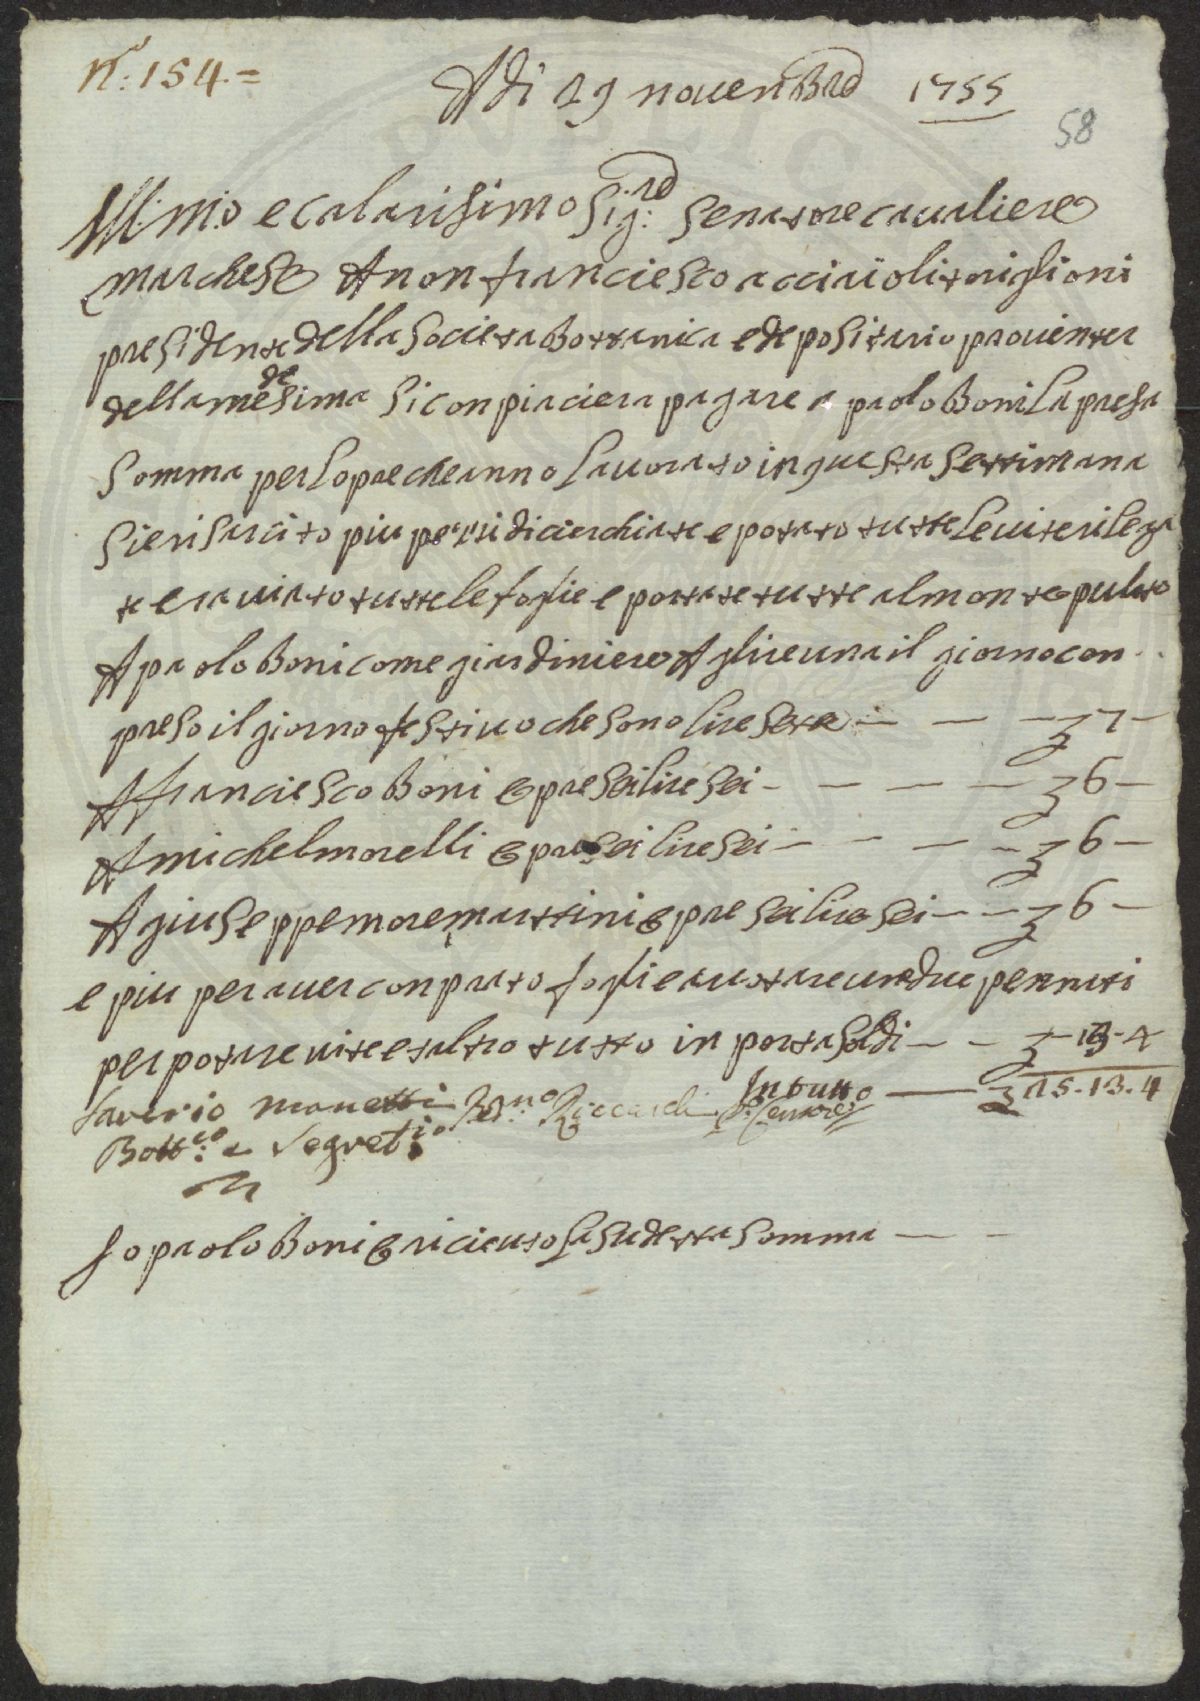 N.o: 154.=
Adi 29 novenbre 1755
58
Ill.mo e calarisimo Sig:re Senatore cavaliere
marchese Anon franciesco acciaioli toriglioni
presidente della Societa Bottanica e depositario proventei
della medesima Si conpiaciera pagare a paolo Boni La presa
Somma per lopre che anno Lavorato in questa Settimana
Sie risarcito piu persi di cierchiate e potato tutte Le vite rilega
te e raviato tutte le foglie e portate tutte al monte pulito
A paolo Boni come giardiniero A glire una il giorno con
preso il giorno festivo che sono lire sette — — — £ 7 —
A franciesco Boni opre sei lire sei — — — — £ 6 —
A michel morelli opre sei lire sei — — — — £ 6 —
A giuseppe moremartini opre sei lire sei — — £ 6 —
e piu per aver conprato fogli e avotare un due pennati
per potare vite e taltro tutto in porta Soldi — — £ — 13 - 4
In tutto — £ 25.13.4
Saverio Manetti Bern.o Riccardi P:o Censore
Bott:co e Segret:io
Io paolo Boni o ricieuto La sudetta Somma — —